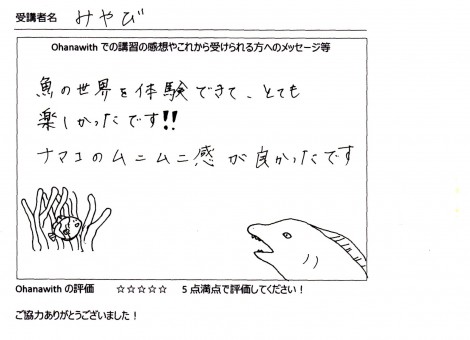 受講者名 みやび
Ohanawith での講習の感想やこれから受けられる方へのメッセージ等
魚の世界を体験できて、とても
楽しかったです!!
ナマコのムニムニ感が良かったです
Ohanawith の評価 ☆☆☆☆☆ 5 点満点で評価してください！
ご協力ありがとうございました！